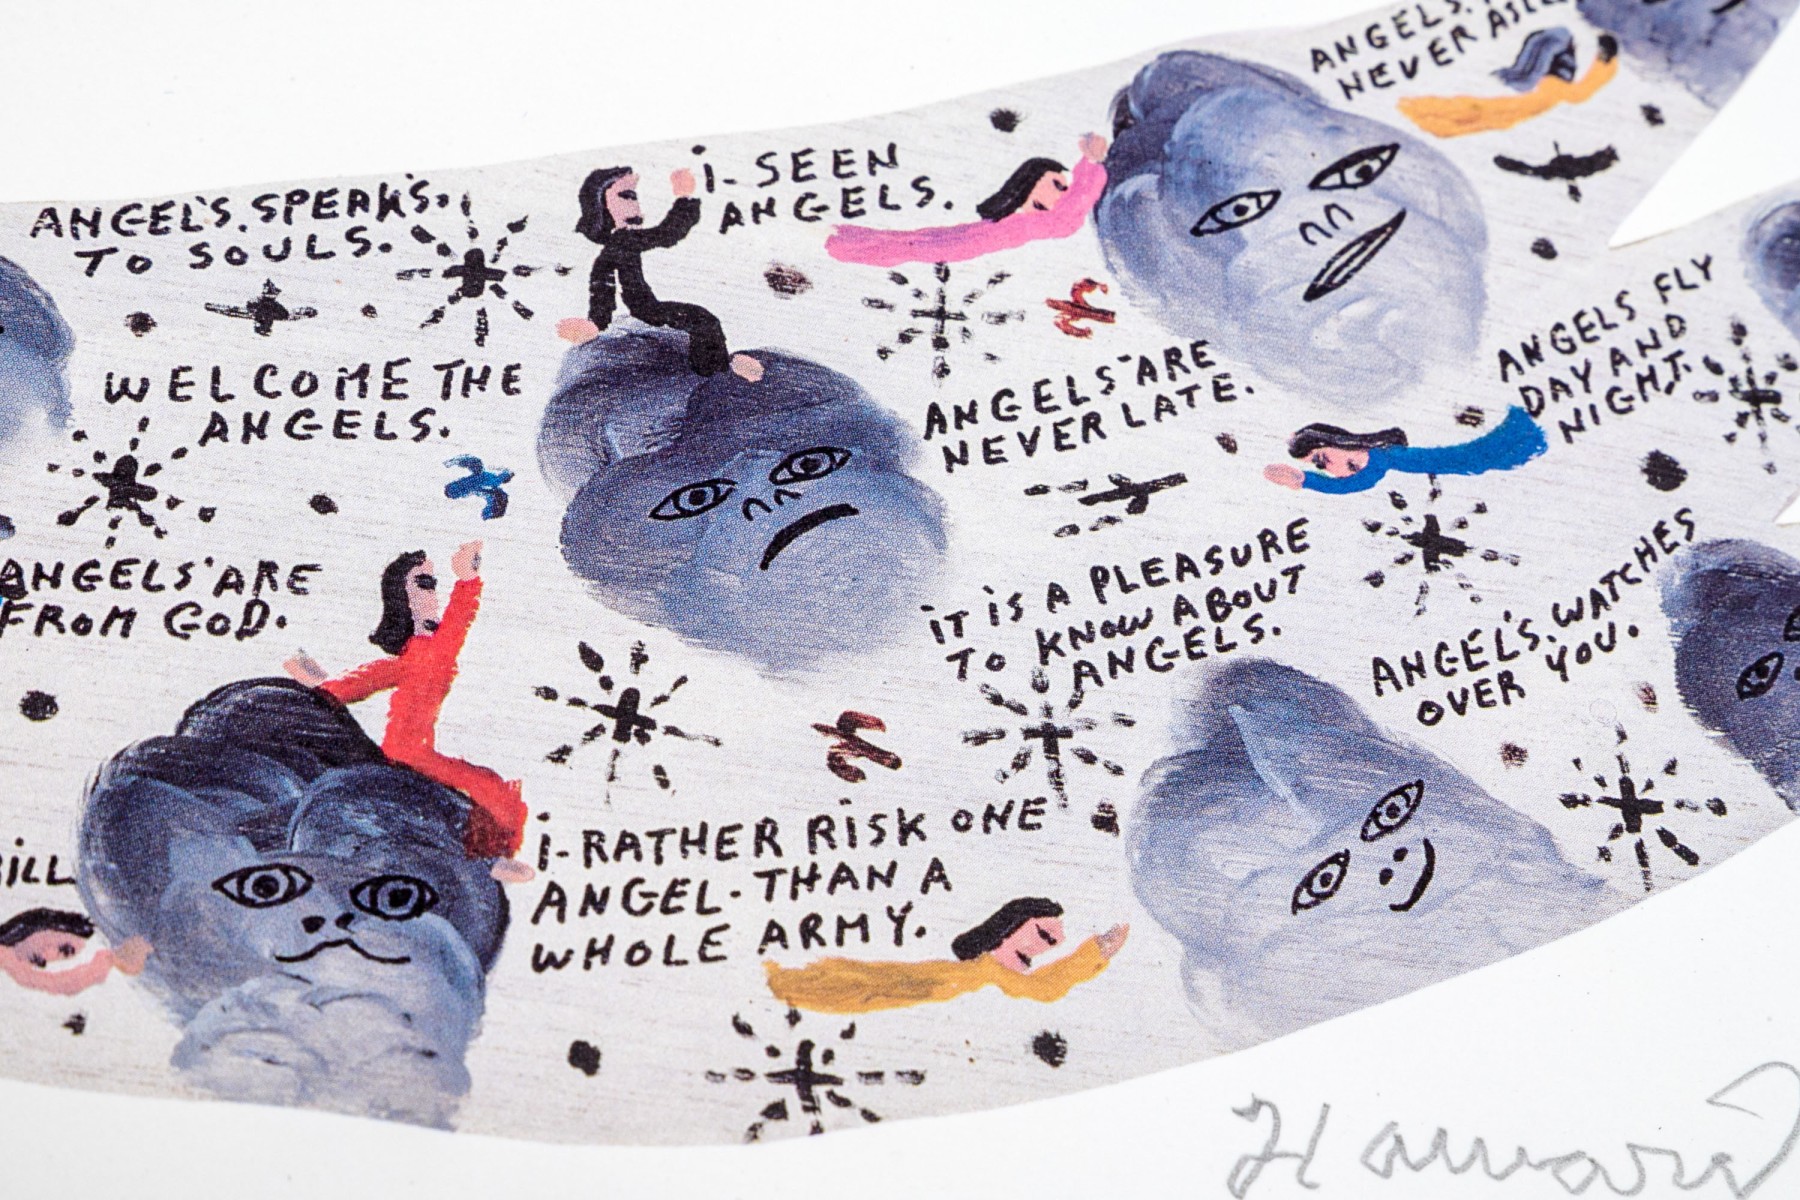 ANGELS.
NEVER
ANGEL'S. SPEAK'S.
TO SOULS.
i- SEEN
ANGELS.
WELCOME THE
ANGELS.
ANGELS ARE
NEVER LATE.
ANGELS FLY
DAY AND
NIGHT.
ANGELS'ARE
FROM GOD.
iT iS A PLEASURE
TO KNOW ABOUT
ANGELS.
ANGEL'S. WATCHES
OVER YOU.
i- RATHER RiSK ONE
ANGEL- THAN A
WHOLE ARMY.
Howard